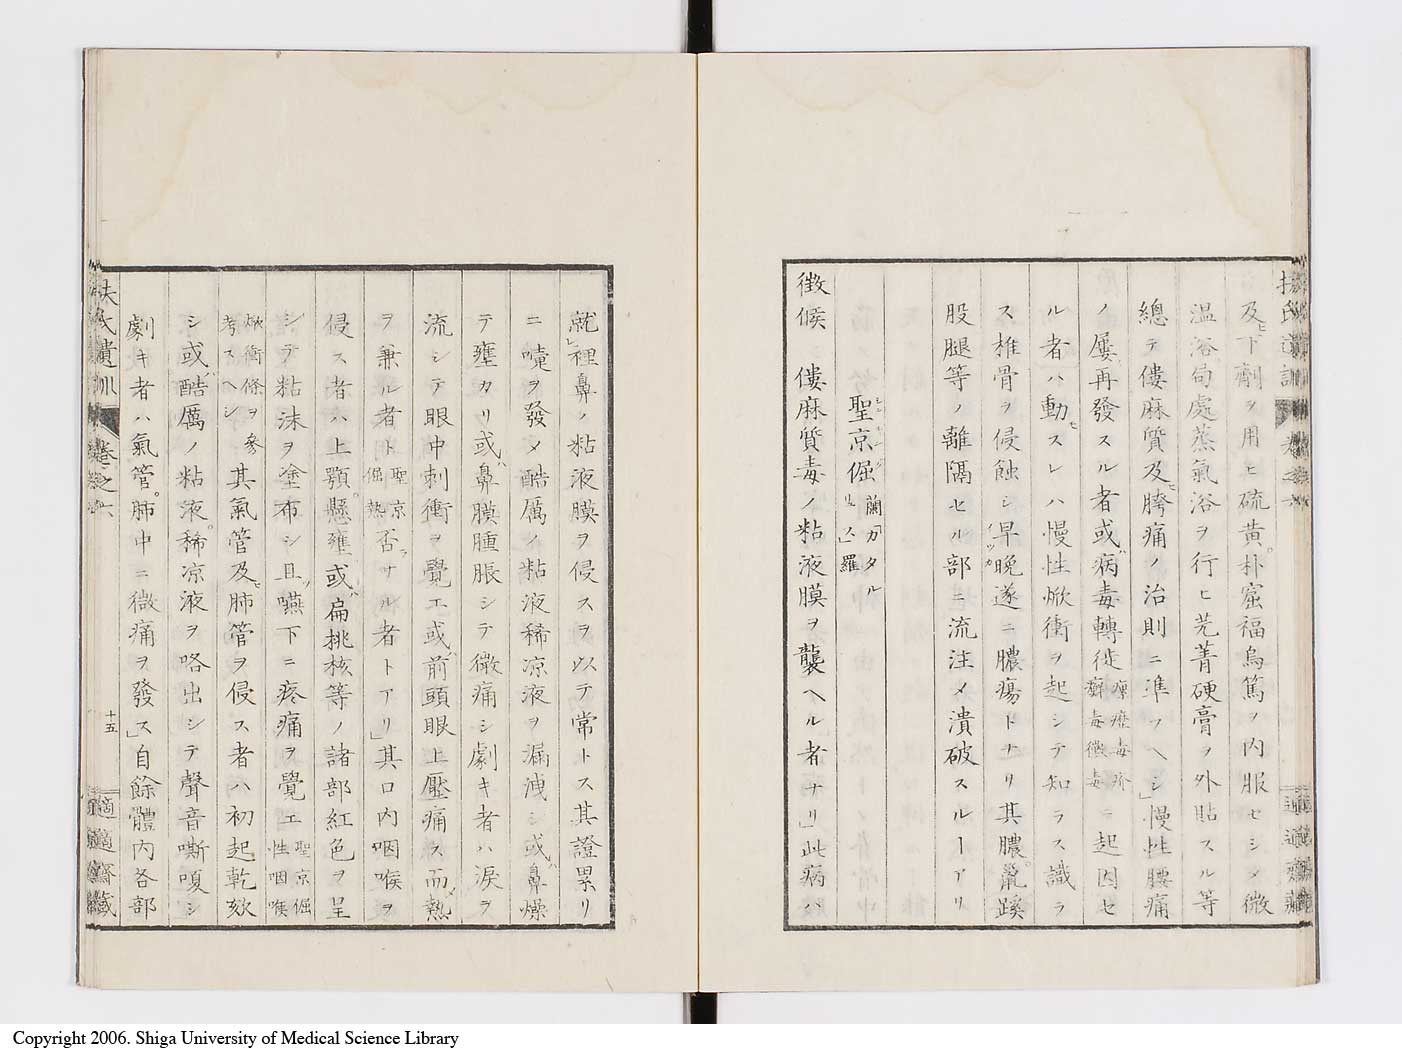 扶氏遺訓 卷之六 適適齋藏
及ヒ下劑ヲ用ヒ硫黄。朴窟福烏篤ヲ内服セシメ微
温浴句處蒸氣浴ヲ行ヒ芫菁硬膏ヲ外貼スル等
總テ僂麻質及ヒ胯痛ノ治則ニ準フヘシ」慢性腰痛
ノ屢再發スル者或ハ病毒轉徙痳疹毒疥癬毒黴毒ニ起因セ
ル者ハ動モスレハ慢性焮衝ヲ起シテ知ラス識ラ
ス椎骨ヲ侵蝕シ早晩遂ニ膿瘍トナリ其膿。鼠蹊
股腿等ノ離隔セル部ニ流注メ潰破スルヿアリ
聖京倔 蘭カタルレユス羅
徴候 僂麻質毒ノ粘液膜ヲ襲ヘル者ナリ」此病ハ
就裡鼻ノ粘液膜ヲ侵スヲ以テ常トス其證累リ
ニ嚔ヲ發メ酷厲ノ粘液稀凉液ヲ漏洩シ或ハ鼻燥
テ壅カリ或ハ鼻膜腫脹シテ微痛シ劇キ者ハ涙ヲ
流シテ眼中刺衝ヲ覺エ或ハ前頭眼上壓痛ス而メ熱
ヲ兼ル者ト聖京倔熱否ラサル者トアリ」其口内咽喉ヲ
侵ス者ハ上顎。懸壅。或ハ扁挑核等ノ諸部紅色ヲ呈
シテ粘沫ヲ塗布シ且ツ嚥下ニ疼痛ヲ覺エ聖京倔性咽喉
焮衝條ヲ參考スヘシ其氣管及ヒ肺管ヲ侵ス者ハ初起乾欬
シ或ハ酷厲ノ粘液。稀凉液ヲ咯出シテ聲音嘶嗄シ
劇キ者ハ氣管。肺中ニ微痛ヲ發ス」自餘體内各部
扶氏遺訓 卷之六 十五 適適齋藏
Copyright 2006. Shiga University of Medical Science Library